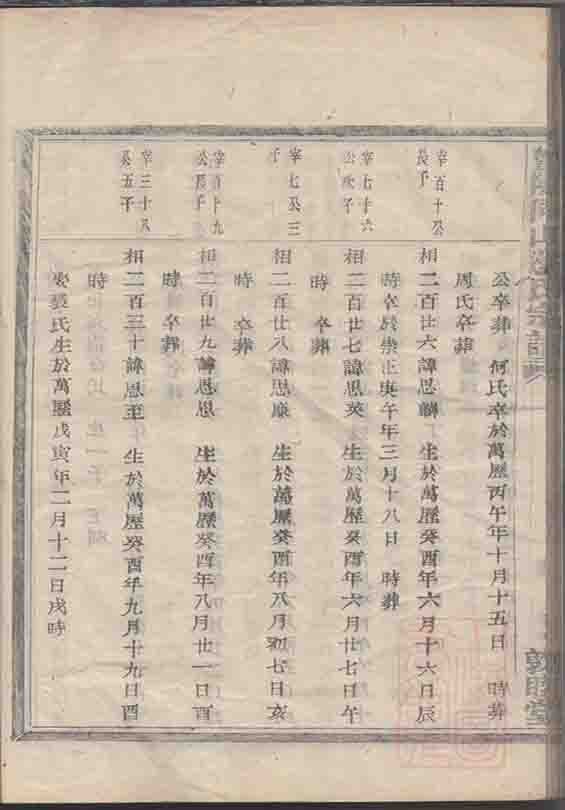 公卒葬 何氏卒於萬歷丙午年十月十五日 時葬
周氏卒葬
宰百十公
長子
相二百廿六諱思麟 生於萬歷癸酉年六月十六日辰
時卒於崇正庚午年三月十八日 時葬
宰七十六
公次子
相二百廿七諱思英 生於萬歷癸酉年六月廿七日午
時 卒葬
宰七公三
子
相二百廿八諱思廉 生於萬歷癸酉年八月初七日亥
時 卒葬
宰百十九
公長子
相二百廿九諱思恩 生於萬歷癸酉年八月廿一日酉
時 卒葬
宰三十八
公五子
相二百三十諱思至 生於萬歷癸酉年九月十九日酉
時
娶婁氏生於萬歷戊寅年二月十二日戌時
氏宗譜
敦睦堂